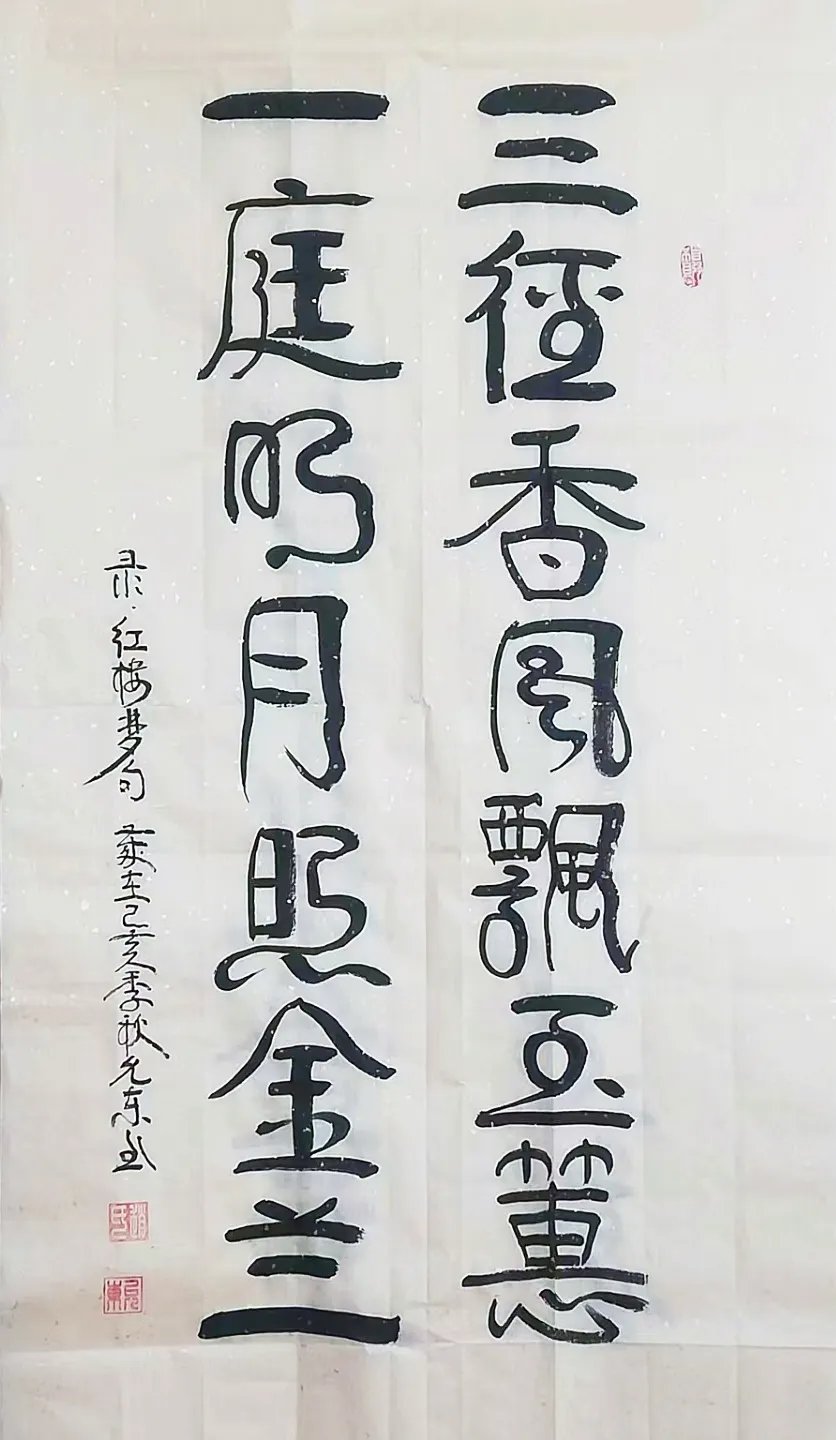 三径香风飄玉蕙
一庭明月照金兰
录·红楼梦句 歲在己亥季秋允东书
允東